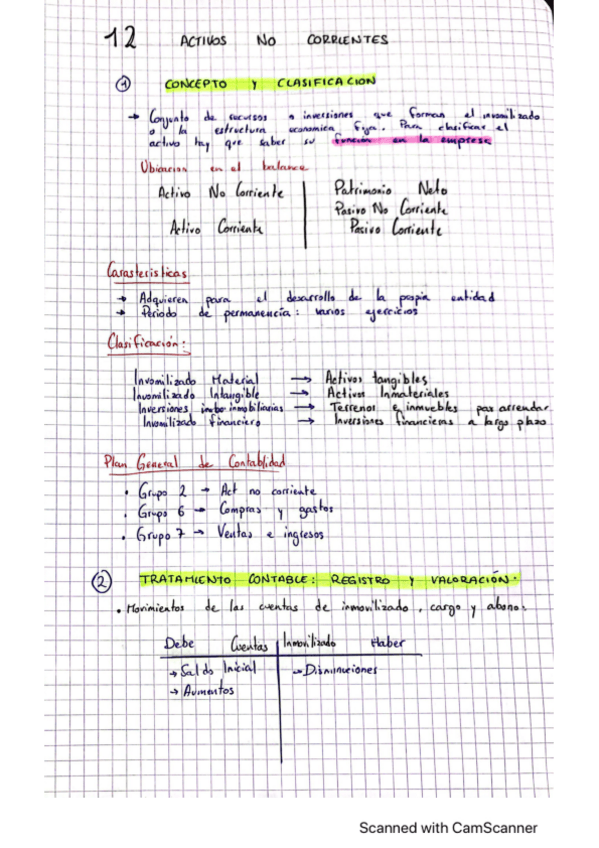 12 ACTIVOS NO CORRIENTES
① CONCEPTO Y CLASIFICACION
→ Conjunto de recursos o inversiones que forman el inmovilizado
o la estructura economica fija. Para clasificar el
activo hay que saber su función en la empresa
Ubicacion en el balance
Activo No Corriente Patrimonio Neto
Pasivo No Corriente
Activo Corriente Pasivo Corriente
Carasteristicas
→ Adquieren para el desarrollo de la propia entidad
→ Periodo de permanencia: varios ejercicios
Clasificación:
Invomilizado Material → Activos tangibles
Invomilizado Intangible → Activos Inmateriales
Inversiones inmobiliarias → Terrenos e inmuebles par arrendar
Invomilizado financiero → Inversiones financieras a largo plazo
Plan General de Contablidad
• Grupo 2 → Act no corriente
• Grupo 6 → Compras y gastos
• Grupo 7 → Ventas e ingresos
② TRATAMIENTO CONTABLE: REGISTRO Y VALORACIÓN.
• Movimientos de las cuentas de inmovilizado, cargo y abono:
Debe Cuentas Inmovilizado Haber
→ Saldo Inicial → Disminuciones
→ Aumentos
Scanned with CamScanner